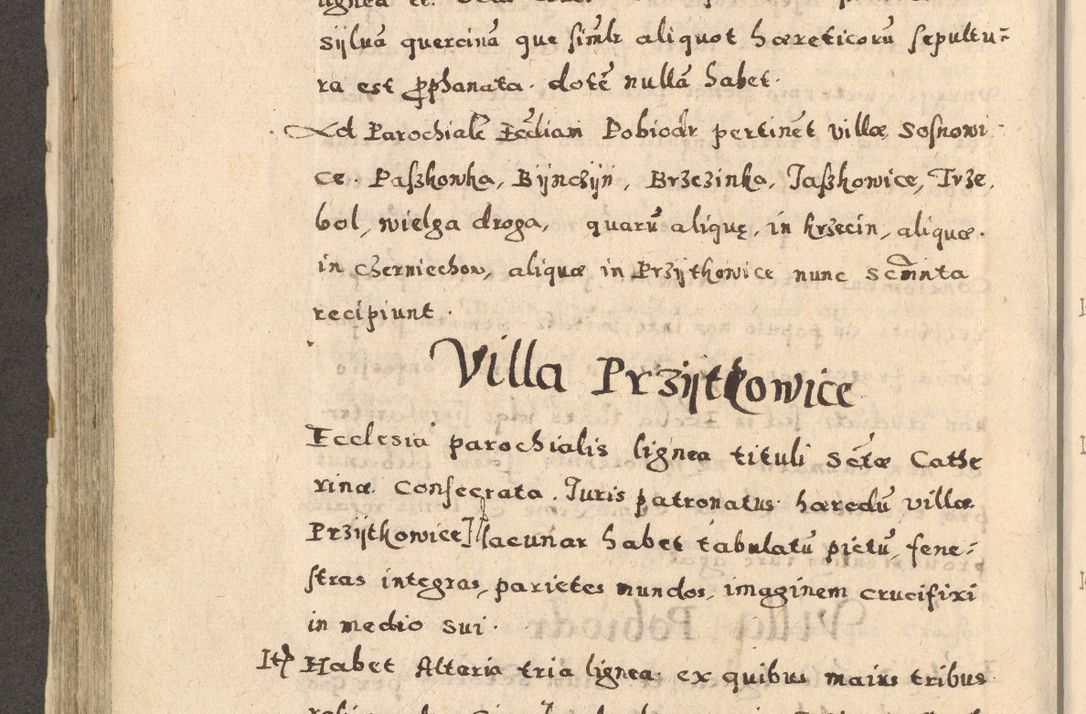 sÿluā quercinā que simlr aliquot hæreticorū sepultu=
ra est pphanata. dotē nullā habet.
Ad Parochialē Eccliam Pobiedr pertinēt villæ Sosnowi
ce. Paszkowka, Bÿnczÿn, Brzezinka, Jaszkowice, Trze,
bol, wielga droga, quarū aliquę, in krzecin, aliquæ.
in Czerniechow, aliquæ in Przÿtkowice nunc Scmnta
recipiunt.
Villa Przÿtkowice
Ecclesia parochialis lignea tituli Sctæ Cathe
rinæ Consecrata. Juris patronatus hæredū villæ
Przÿtkowice] lacunar habet tabulatū pictū, fene=
stras integras, parietes mundos, imaginem crucifixi
in medio sui.
Itē Habet Altaria tria lignea ex quibus maius tribus